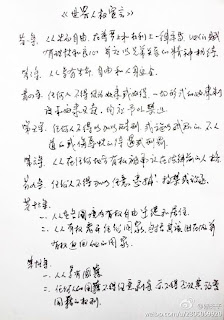 《世界人权宣言》
第一条、人人生而自由,在尊严和权利上一律平等。他们赋
有理性和良心,并应以兄弟关系的精神相待。
第三条、人人有权享有生命、自由和人身安全。
第四条、任何人不得使为奴隶或奴役;一切形式的奴隶制
度和奴隶买卖,均应予以禁止。
第五条、任何人不得加以酷刑,或施以残忍的、不人
道的或侮辱性的待遇或刑罚。
第六条、人人在任何地方有权被承认在法律前的人格。
第九条、任何人不得加以任意逮捕、拘禁或放逐。
第十三条
一、人人在各国境内有权自由迁徙和居住。
二、人人有权离开任何国家,包括其本国在内,并
有权返回他的国家。
第十五条
一、人人有权享有国籍。
二、任何人的国籍不得任意剥夺,亦不得否认其改变
国籍的权利。